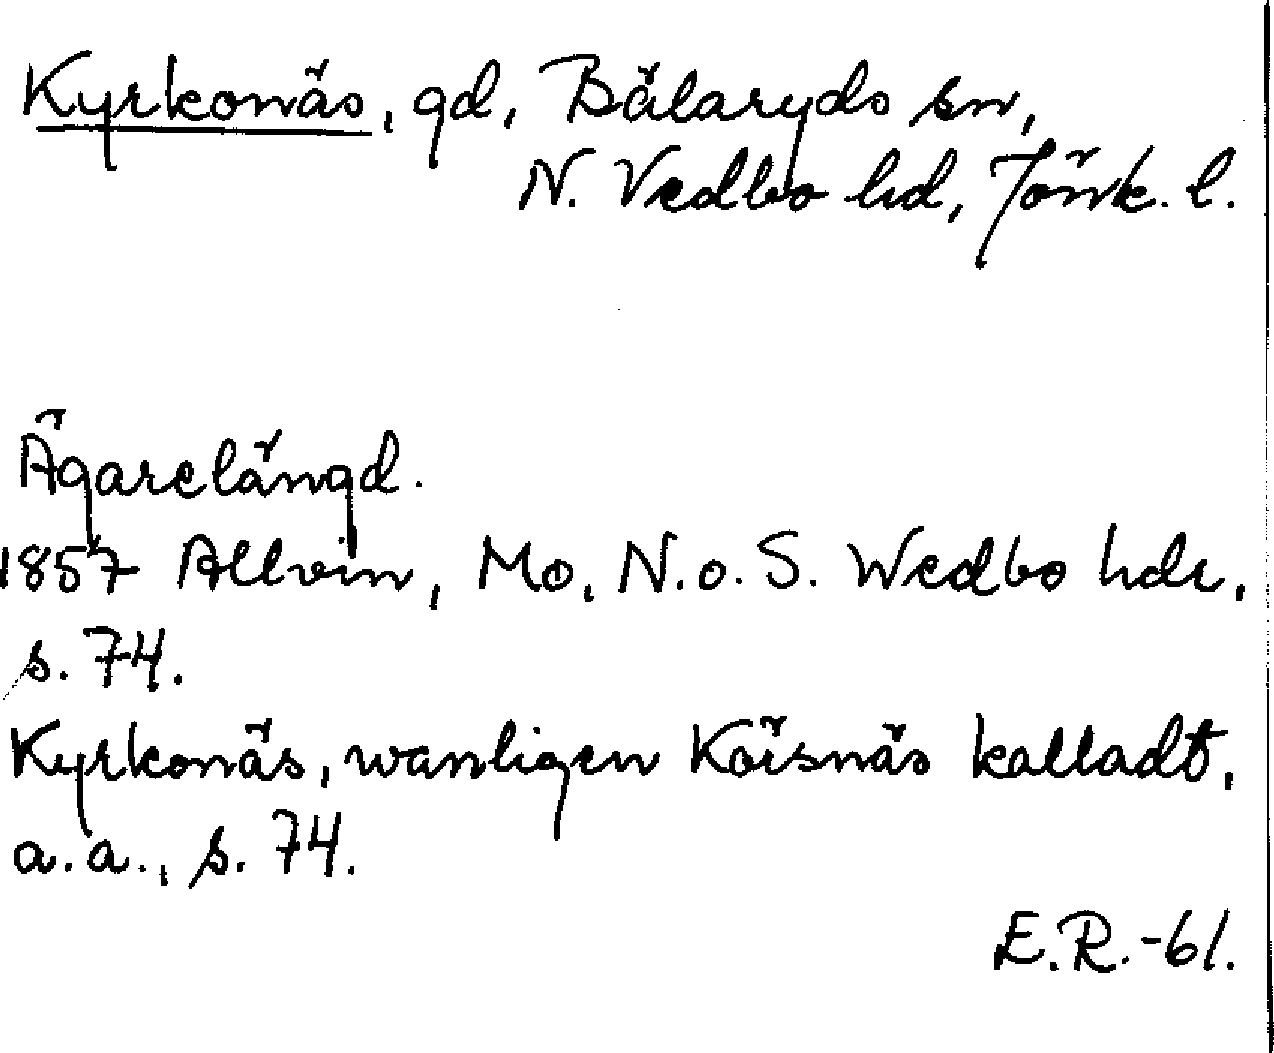 Kyrkonäs, gd, Bälaryds sn,
N. Vedbo hd, Jönk. l.
Ägarelängd.
1857 Allvin, Mo, N. o. S. Wedbo hdr,
s. 74.
Kyrkonäs, wanligen Körsnäs kalladt,
a. a., s. 74.
E.R.-61.